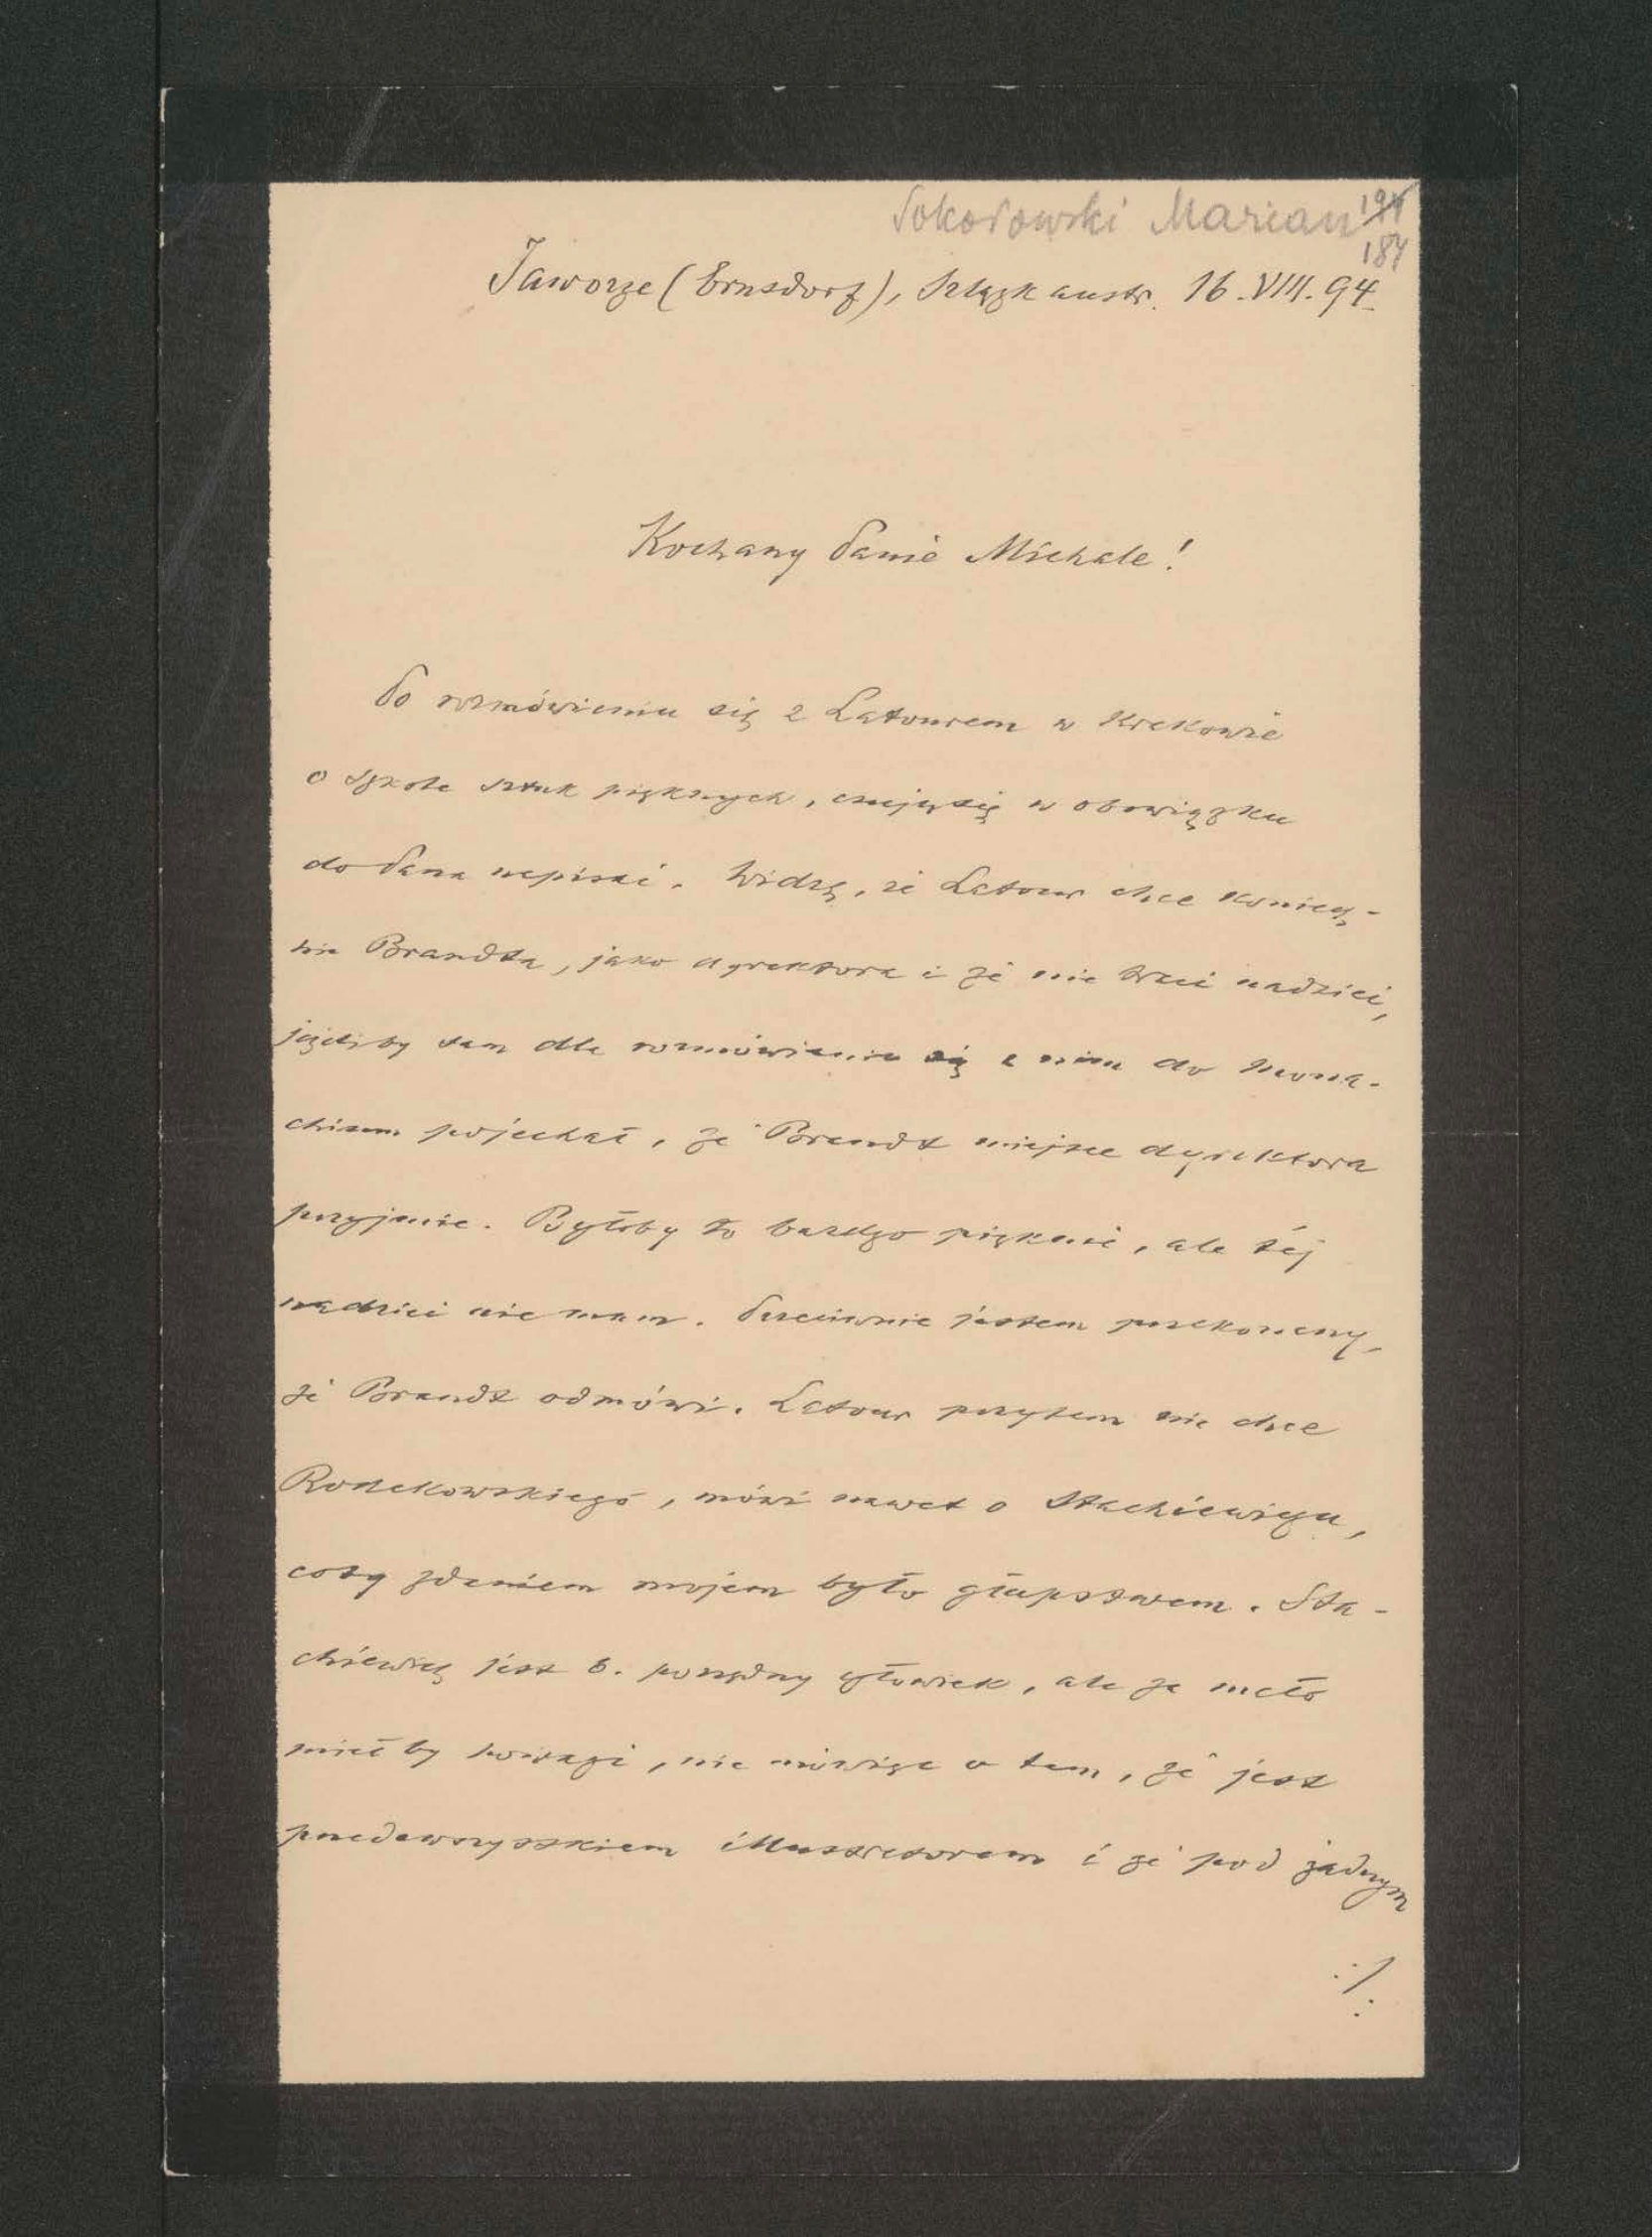 Sokołowski Marian
194
184
Jaworze (Ernsdorf), Szlązk austr. 16.VIII.94.
Kochany Panie Michale!
Po rozmówieniu się z Latourem w Krakowie
o szkole sztuk pięknych, czuję się w obowiązku
do Pana napisać. Widzę, że Latour chce koniecz-
nie Brandta, jako dyrektora i że nie traci nadziei,
jeżeliby sam dla rozmówienia się z nim do Mona-
chium pojechał, że Brandt miejsce dyrektora
przyjmie. Byłoby to bardzo pięknie, ale tej
nadziei nie mam. Przeciwnie jestem przekonany,
że Brandt odmówi. Latour przytem nie chce
Rodakowskiego, mówi nawet o Stachiewiczu,
coby zdaniem mojem było głupstwem. Sta-
chiewicz jest b. porządny człowiek, ale za mało
miałby powagi, nie mówiąc o tem, że jest
przedewszystkiem illustratorem i że pod żadnym
./.